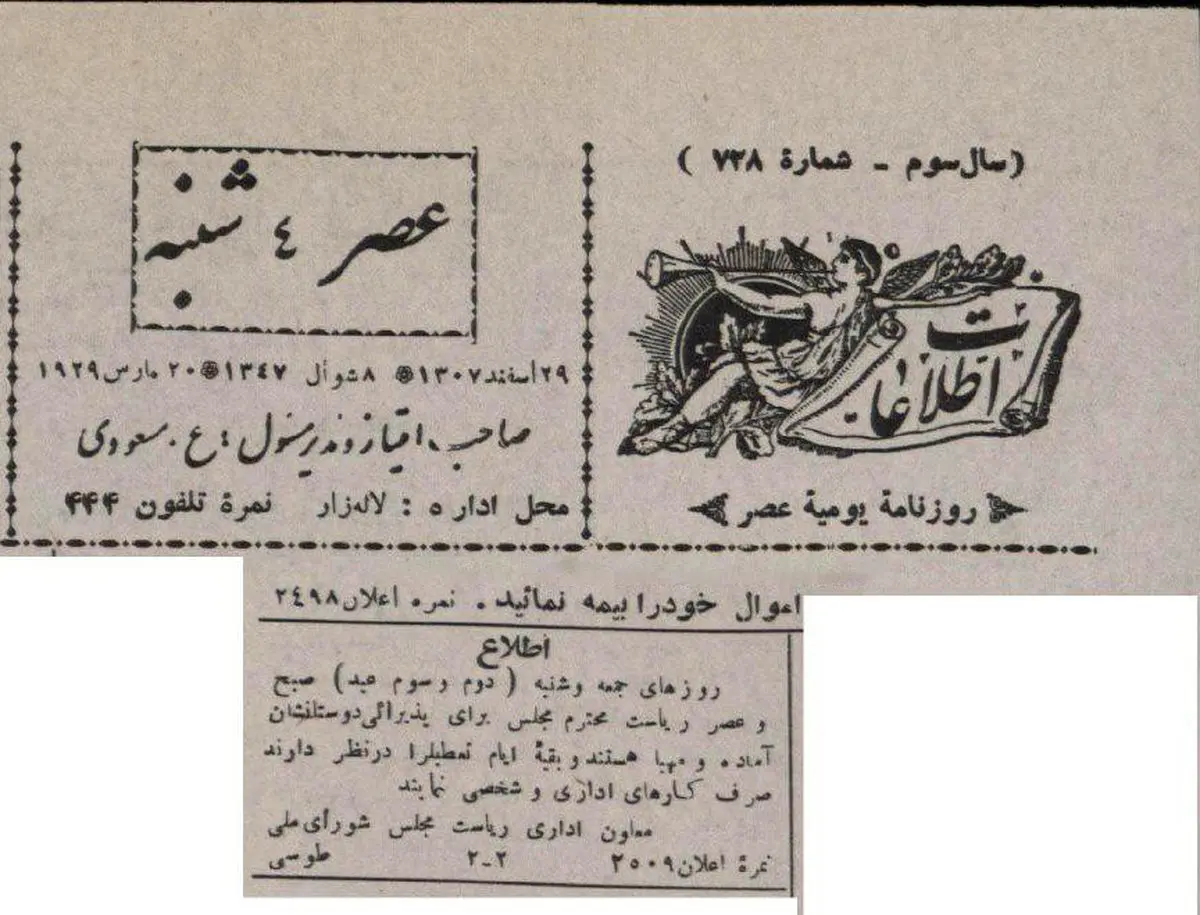 (سال سوم ـ شمارهٔ ۷۳۸ )
اطلاعات
روزنامهٔ یومیهٔ عصر
عصر ٤ شنبه
۲۹ اسفند ۱۳۰۷ ۸ شوال ۱۳٤۷ ۲۰ مارس ۱۹۲۹
صاحب امتیاز و مدیر مسئول : ع . مسعودی
محل اداره : لاله‌زار نمرهٔ تلفون ۴۴۴
اموال خودرا بیمه نمائید . نمره اعلان ۲٤۹۸
اطلاع
روزهای جمعه وشنبه ( دوم و سوم عید ) صبح
و عصر ریاست محترم مجلس برای پذیرائی دوستانشان
آماده و مهیا هستند و بقیهٔ ایام تعطیلرا درنظر دارند
صرف کارهای اداری و شخصی نمایند
معاون اداری ریاست مجلس شورای ملی
طوسی
نمرهٔ اعلان ۲٥۰۹ ۲ـ۲